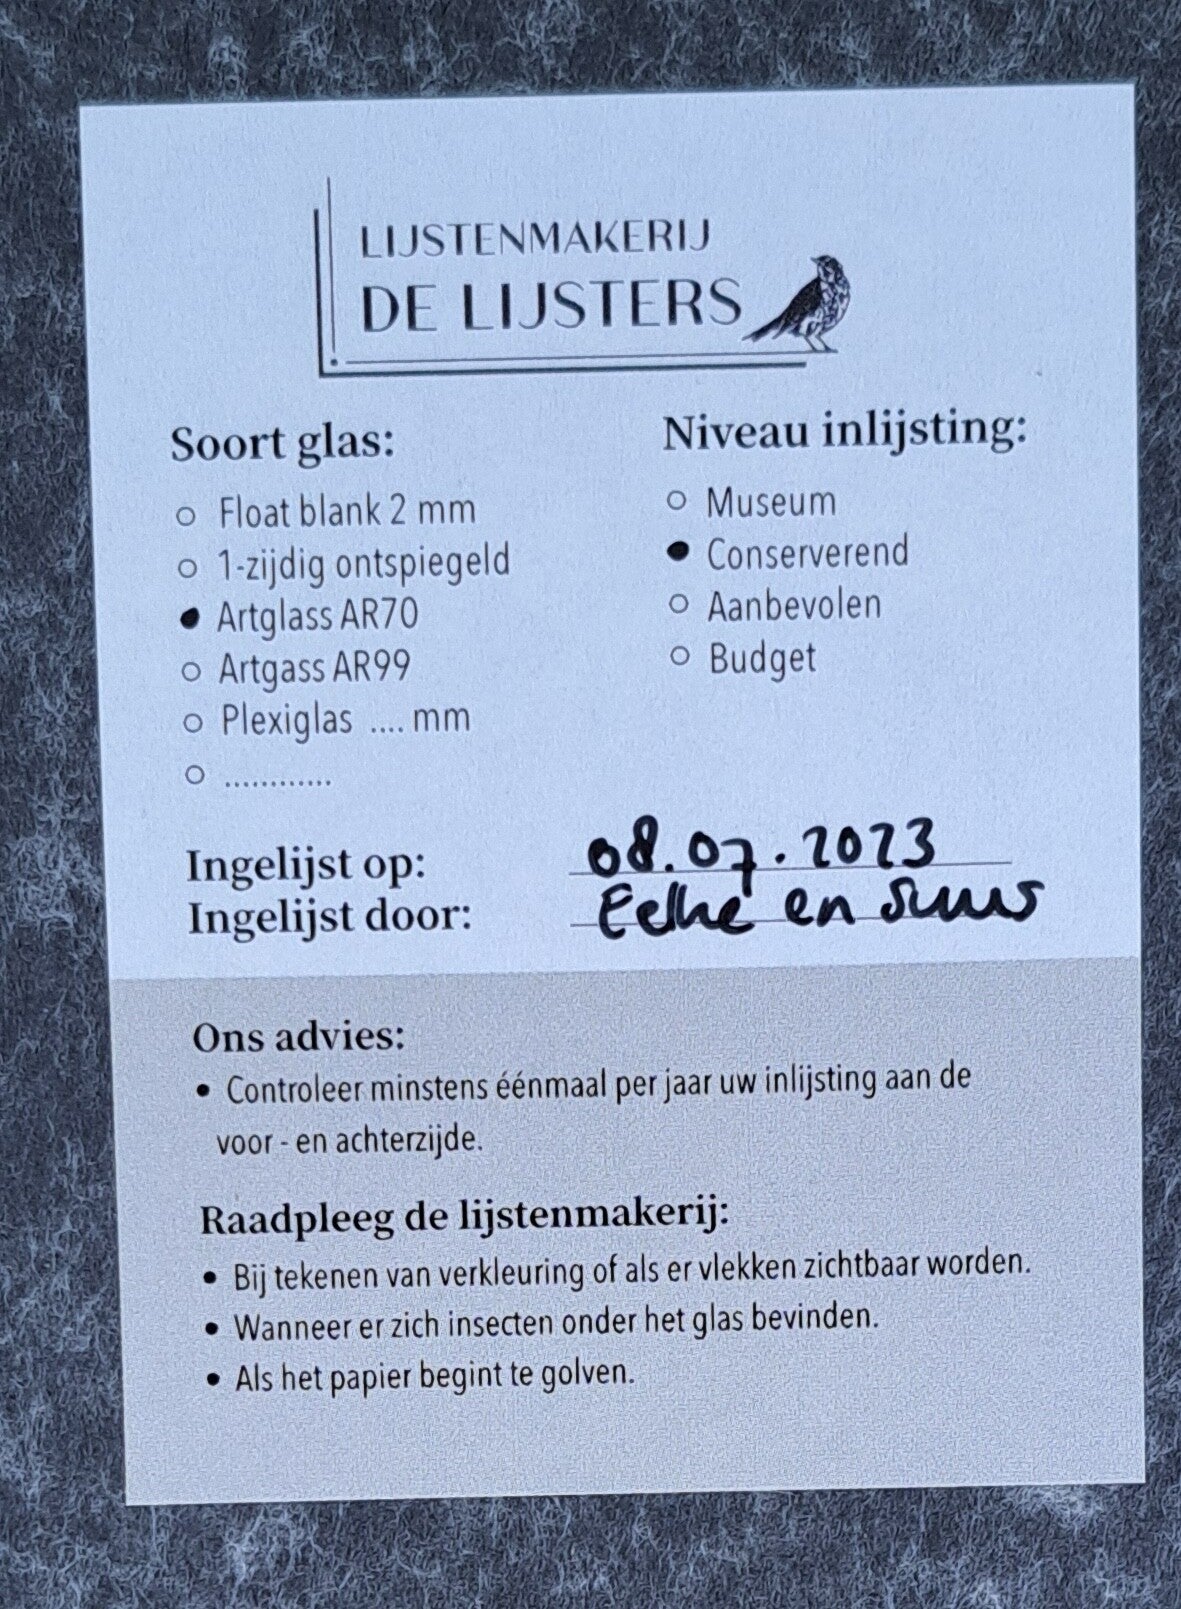 LIJSTENMAKERIJ
DE LIJSTERS
Soort glas:
Float blank 2 mm
1-zijdig ontspiegeld
Artglass AR70
Artgass AR99
Plexiglas .... mm
............
Niveau inlijsting:
Museum
Conserverend
Aanbevolen
Budget
Ingelijst op: 08.07.2023
Ingelijst door: Eelke en Suus
Ons advies:
• Controleer minstens éénmaal per jaar uw inlijsting aan de
voor - en achterzijde.
Raadpleeg de lijstenmakerij:
• Bij tekenen van verkleuring of als er vlekken zichtbaar worden.
• Wanneer er zich insecten onder het glas bevinden.
• Als het papier begint te golven.